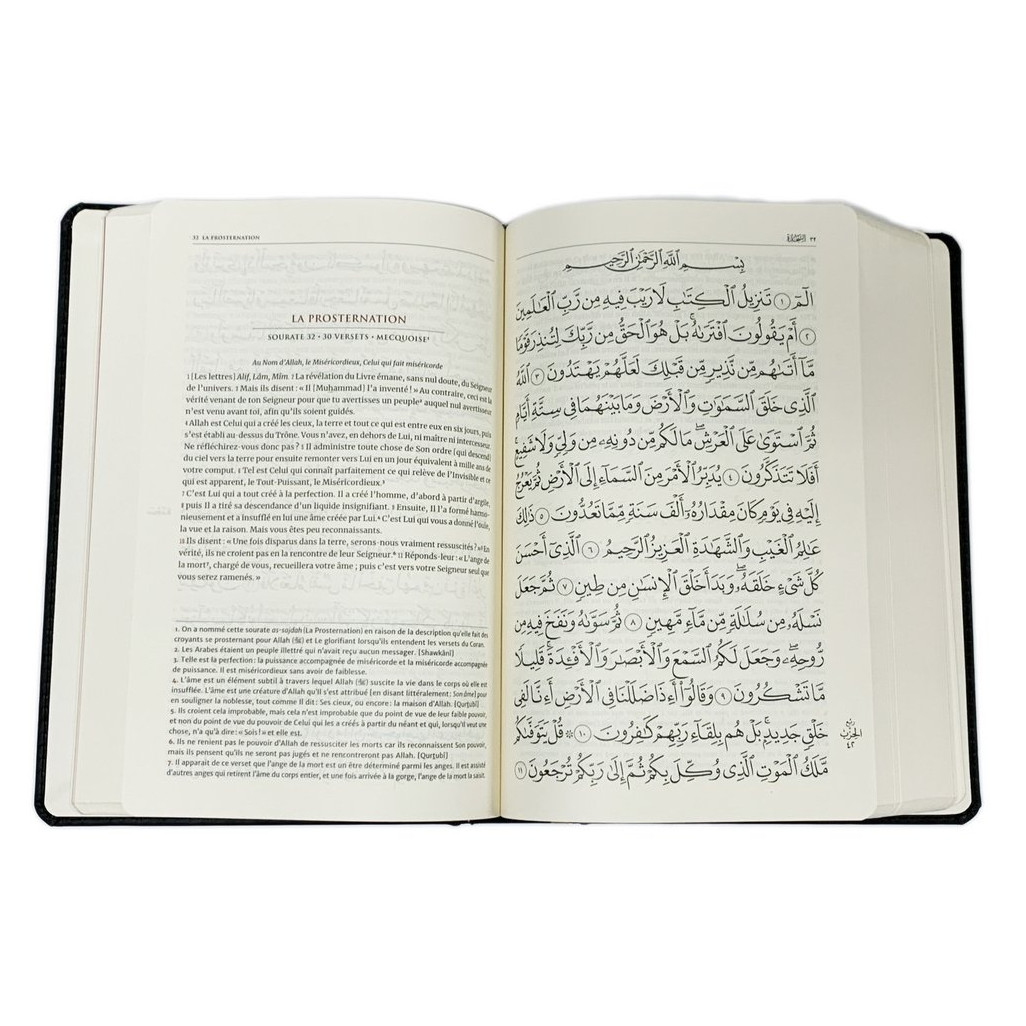 32 LA PROSTERNATION
LA PROSTERNATION
SOURATE 32 • 30 VERSETS • MECQUOISE¹
Au Nom d'Allah, le Miséricordieux, Celui qui fait miséricorde
1 [Les lettres] Alif, Lâm, Mîm. 2 La révélation du Livre émane, sans nul doute, du Seigneur
de l'univers. 3 Mais ils disent : « Il [Muḥammad] l'a inventé ! » Au contraire, ceci est la
vérité venant de ton Seigneur pour que tu avertisses un peuple² auquel nul avertisseur
n'est venu avant toi, afin qu'ils soient guidés.
4 Allah est Celui qui a créé les cieux, la terre et tout ce qui est entre eux en six jours, puis
s'est établi au-dessus du Trône. Vous n'avez, en dehors de Lui, ni maître ni intercesseur.
Ne réfléchirez-vous donc pas ? 5 Il administre toute chose de Son ordre [qui descend]
du ciel vers la terre pour ensuite remonter vers Lui en un jour équivalent à mille ans de
votre comput. 6 Tel est Celui qui connaît parfaitement ce qui relève de l'Invisible et ce
qui est apparent, le Tout-Puissant, le Miséricordieux.³
7 C'est Lui qui a tout créé à la perfection. Il a créé l'homme, d'abord à partir d'argile,
8 puis Il a tiré sa descendance d'un liquide insignifiant. 9 Ensuite, Il l'a formé harmo-
nieusement et a insufflé en lui une âme créée par Lui.⁴ C'est Lui qui vous a donné l'ouïe,
la vue et la raison. Mais vous êtes peu reconnaissants.
10 Ils disent : « Une fois disparus dans la terre, serons-nous vraiment ressuscités ? »⁵ En
vérité, ils ne croient pas en la rencontre de leur Seigneur.⁶ 11 Réponds-leur : « L'ange de
la mort⁷, chargé de vous, recueillera votre âme ; puis c'est vers votre Seigneur seul que
vous serez ramenés. »
1. On a nommé cette sourate as-sajdah (La Prosternation) en raison de la description qu'elle fait des
croyants se prosternant pour Allah (ﷻ) et Le glorifiant lorsqu'ils entendent les versets du Coran.
2. Les Arabes étaient un peuple illettré qui n'avait reçu aucun messager. [Shawkânî]
3. Telle est la perfection : la puissance accompagnée de miséricorde et la miséricorde accompagnée
de puissance. Il est miséricordieux sans avoir de faiblesse.
4. L'âme est un élément subtil à travers lequel Allah (ﷻ) suscite la vie dans le corps où elle est
insufflée. L'âme est une créature d'Allah qu'Il s'est attribué [en disant littéralement : Son âme] pour
en souligner la noblesse, tout comme Il dit : Ses cieux, ou encore : la maison d'Allah. [Qurṭubî]
5. Ils croient cela improbable, mais cela n'est improbable que du point de vue de leur faible pouvoir,
et non du point de vue du pouvoir de Celui qui les a créés à partir du néant et qui, lorsqu'Il veut une
chose, n'a qu'à dire : « Sois ! » et elle est.
6. Ils ne renient pas le pouvoir d'Allah de ressusciter les morts car ils reconnaissent Son pouvoir,
mais ils pensent qu'ils ne seront pas jugés et ne rencontreront pas Allah. [Qurṭubî]
7. Il apparait de ce verset que l'ange de la mort est un être déterminé parmi les anges. Il est assisté
d'autres anges qui retirent l'âme du corps entier, et une fois arrivée à la gorge, l'ange de la mort la saisit.
٣٢ السَّجْدَة
بِسْمِ ٱللَّهِ ٱلرَّحْمَٰنِ ٱلرَّحِيمِ
الٓمٓ ١ تَنزِيلُ ٱلْكِتَٰبِ لَا رَيْبَ فِيهِ مِن رَّبِّ ٱلْعَٰلَمِينَ
٢ أَمْ يَقُولُونَ ٱفْتَرَىٰهُۚ بَلْ هُوَ ٱلْحَقُّ مِن رَّبِّكَ لِتُنذِرَ قَوْمًا
مَّآ أَتَىٰهُم مِّن نَّذِيرٍ مِّن قَبْلِكَ لَعَلَّهُمْ يَهْتَدُونَ ٣ ٱللَّهُ
ٱلَّذِى خَلَقَ ٱلسَّمَٰوَٰتِ وَٱلْأَرْضَ وَمَا بَيْنَهُمَا فِى سِتَّةِ أَيَّامٍ
ثُمَّ ٱسْتَوَىٰ عَلَى ٱلْعَرْشِۖ مَا لَكُم مِّن دُونِهِۦ مِن وَلِىٍّ وَلَا شَفِيعٍۚ
أَفَلَا تَتَذَكَّرُونَ ٤ يُدَبِّرُ ٱلْأَمْرَ مِنَ ٱلسَّمَآءِ إِلَى ٱلْأَرْضِ ثُمَّ يَعْرُجُ
إِلَيْهِ فِى يَوْمٍ كَانَ مِقْدَارُهُۥٓ أَلْفَ سَنَةٍ مِّمَّا تَعُدُّونَ ٥ ذَٰلِكَ
عَٰلِمُ ٱلْغَيْبِ وَٱلشَّهَٰدَةِ ٱلْعَزِيزُ ٱلرَّحِيمُ ٦ ٱلَّذِىٓ أَحْسَنَ
كُلَّ شَىْءٍ خَلَقَهُۥۖ وَبَدَأَ خَلْقَ ٱلْإِنسَٰنِ مِن طِينٍ ٧ ثُمَّ جَعَلَ
نَسْلَهُۥ مِن سُلَٰلَةٍ مِّن مَّآءٍ مَّهِينٍ ٨ ثُمَّ سَوَّىٰهُ وَنَفَخَ فِيهِ مِن
رُّوحِهِۦۖ وَجَعَلَ لَكُمُ ٱلسَّمْعَ وَٱلْأَبْصَٰرَ وَٱلْأَفْـِٔدَةَۚ قَلِيلًا
مَّا تَشْكُرُونَ ٩ وَقَالُوٓا۟ أَءِذَا ضَلَلْنَا فِى ٱلْأَرْضِ أَءِنَّا لَفِى
خَلْقٍ جَدِيدٍۭۚ بَلْ هُم بِلِقَآءِ رَبِّهِمْ كَٰفِرُونَ ١٠ ۞ قُلْ يَتَوَفَّىٰكُم
مَّلَكُ ٱلْمَوْتِ ٱلَّذِى وُكِّلَ بِكُمْ ثُمَّ إِلَىٰ رَبِّكُمْ تُرْجَعُونَ ١١
ربع
الحزب
٤٢